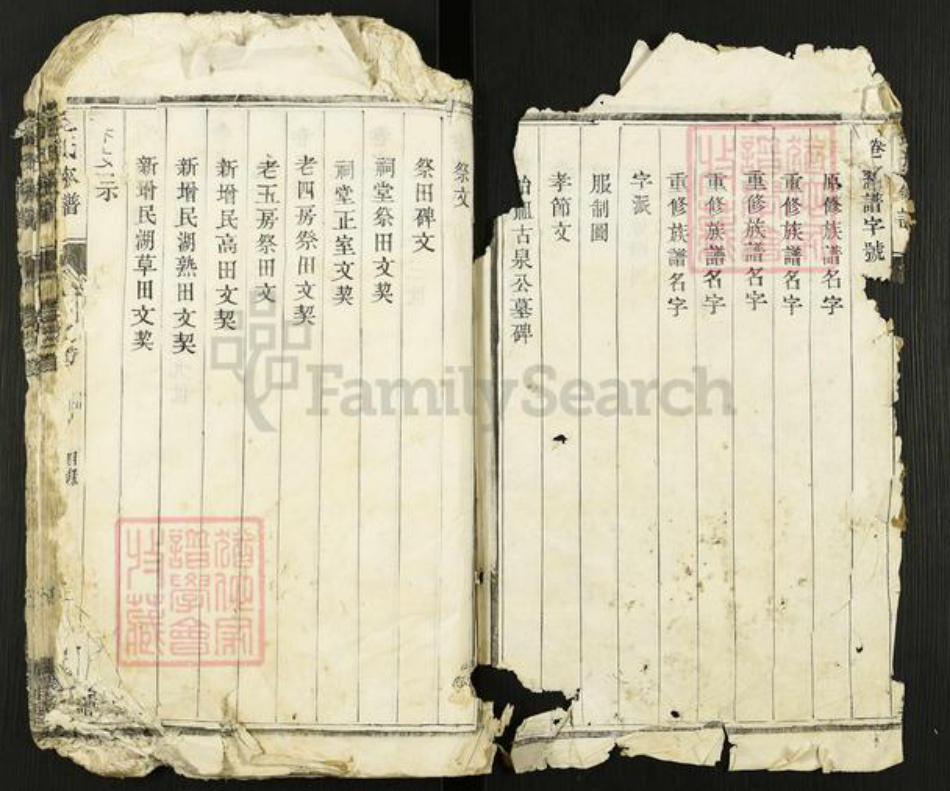 卷二彩譜字號
原修族譜名字
重修族譜名字
重修族譜名字
重修族譜名字
重修族譜名字
字派
服制圖
孝節文
始祖古泉公墓碑
祭文
祭田碑文
祠堂祭田文契
祠堂正室文契
老四房祭田文契
老五房祭田文
新增民高田文契
新增民湖熟田文契
新增民湖草田文契
示
氏家譜
目錄
FamilySearch